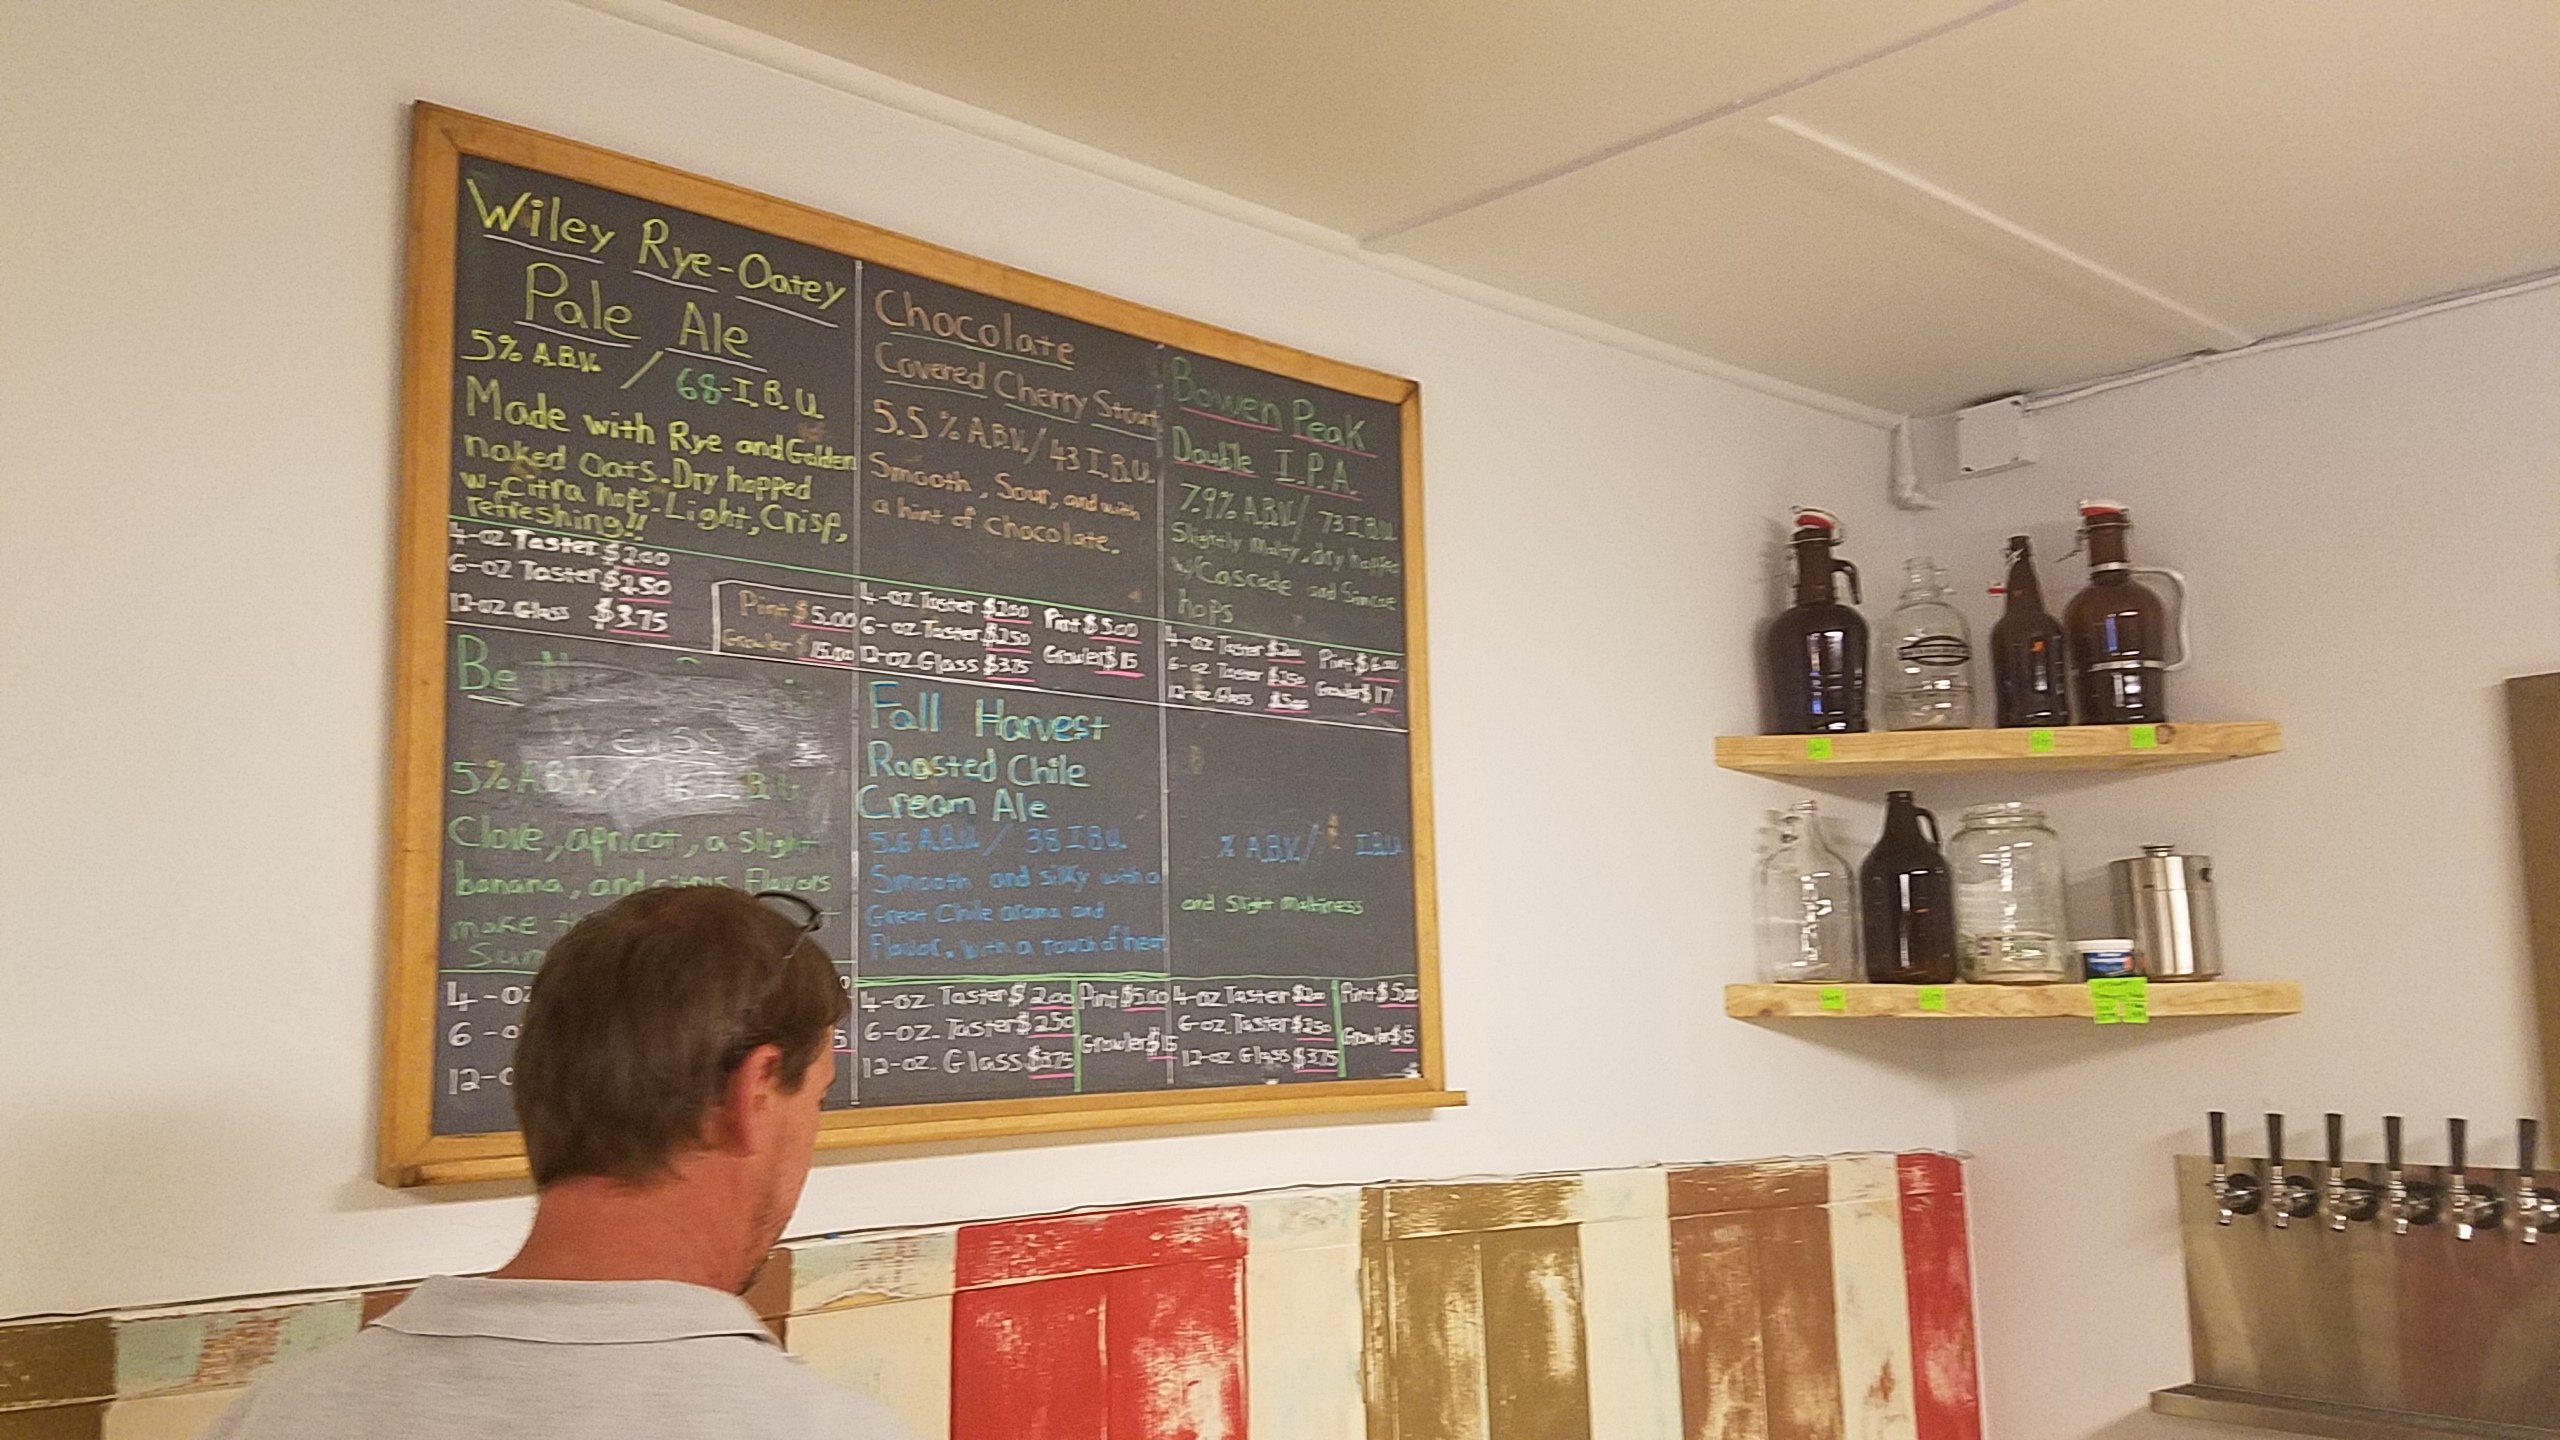 Wiley Rye-Oatey
Pale Ale
5% A.B.V. / 68-I.B.U.
Made with Rye and Golden
naked Oats. Dry hopped
w-Citra hops. Light, Crisp,
refreshing!!
4-oz Taster $2.00
6-oz Taster $2.50
12-oz Glass $3.75
Pint $5.00
Growler $15.00
Chocolate
Covered Cherry Stout
5.5% A.B.V. / 43 I.B.U.
Smooth, Sour, and with
a hint of chocolate.
4-oz Taster $2.00 Pint $5.00
6-oz Taster $2.50
12-oz Glass $3.75 Growler $15
Bowen Peak
Double I.P.A.
7.9% A.B.V. / 73 I.B.U.
Slightly Malty, dry hopped
w/Cascade and Simcoe
hops
4-oz Taster $2.00 Pint $6.00
6-oz Taster $2.50 Growler $17
12-oz Glass $5.00
Be
Weiss
5% A.B.V. / 16 I.B.U.
Clove, apricot, a slight
banana, and citrus Flavors
make
4-oz
6-o
12-o
Fall Harvest
Roasted Chile
Cream Ale
5.6 A.B.V. / 38 I.B.U.
Smooth and silky with a
Great Chile aroma and
Flavor, with a touch of heat
4-oz. Taster $2.00 Pint $5.00
6-oz. Taster $2.50
Growler $15
12-oz. Glass $3.75
% A.B.V. / I.B.U.
and Slight maltiness
4-oz Taster $2.00 Pint $5.00
6-oz. Taster $2.50
Growler $15
12-oz Glass $3.75